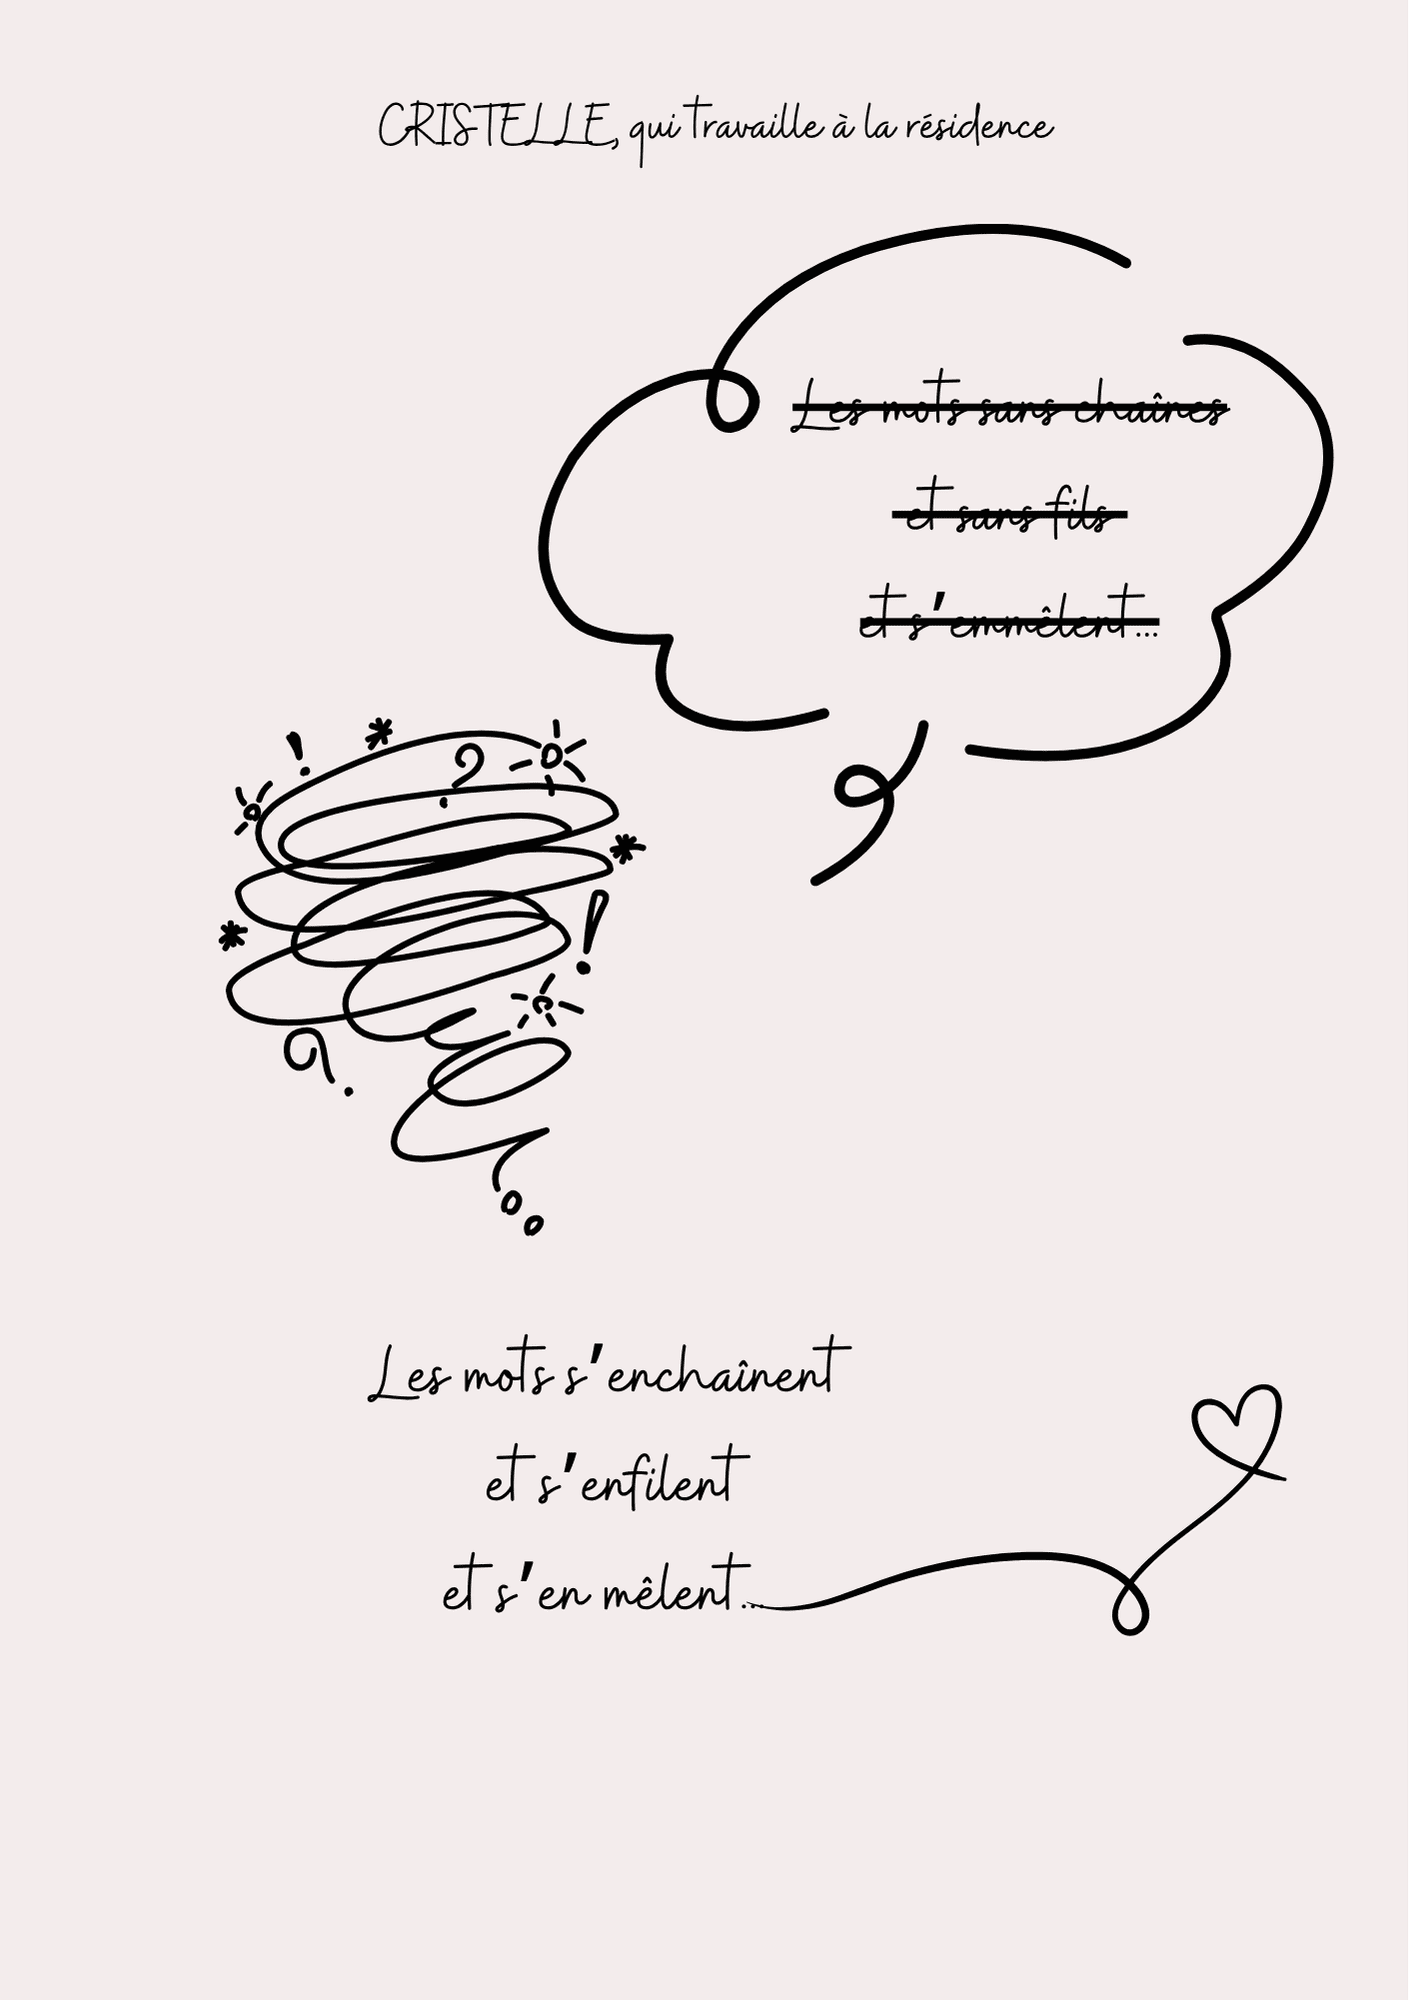 CRISTELLE, qui travaille à la résidence
Les mots sans chaînes
et sans fils
et s'emmêlent...
Les mots s'enchaînent
et s'enfilent
et s'en mêlent...